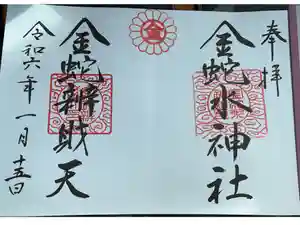 奉拝
金蛇水神社
金
金蛇辨財天
令和六年一月十五日